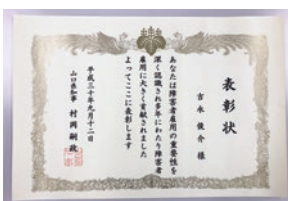 表彰状
吉永 俊介 様
あなたは障害者雇用の重要性を
深く認識され多年にわたり障害者
雇用に大きく貢献されました
よってここに表彰します
平成三十年九月十二日
山口県知事 村岡嗣政